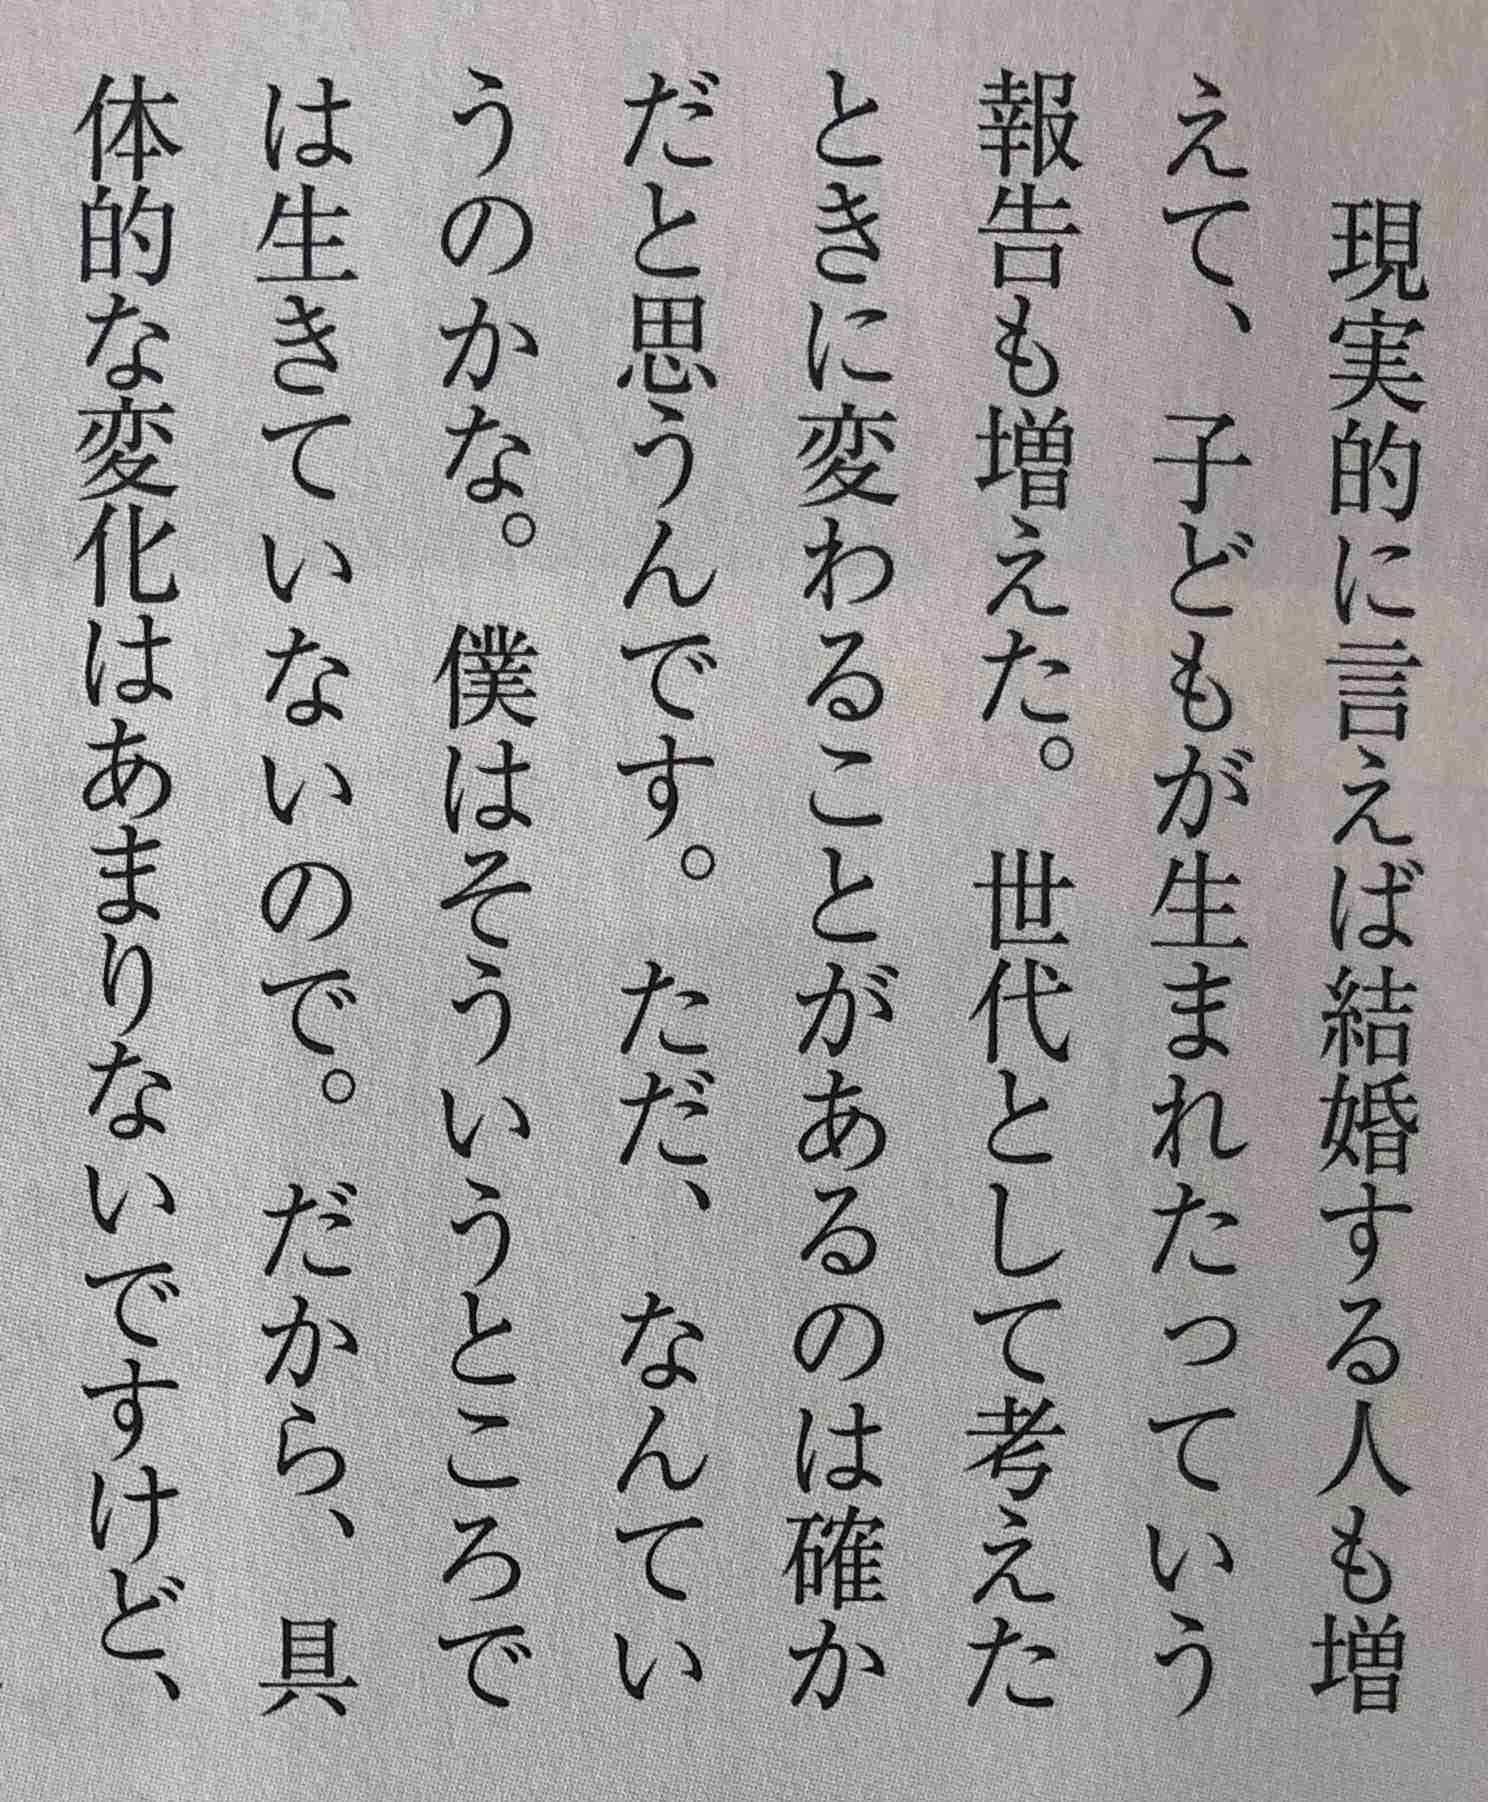 現実的に言えば結婚する人も増
えて、子どもが生まれたっていう
報告も増えた。世代として考えた
ときに変わることがあるのは確か
だと思うんです。ただ、なんてい
うのかな。僕はそういうところで
は生きていないので。だから、具
体的な変化はあまりないですけど、